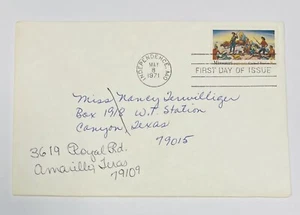 INDEPENDENCE, MO
MAY
8
1971
FIRST DAY OF ISSUE
Miss Nancy Terwilliger
Box 1918 W.T. Station
Canyon, Texas
79015
3619 Royal Rd.
Amarillo, Texas
79109